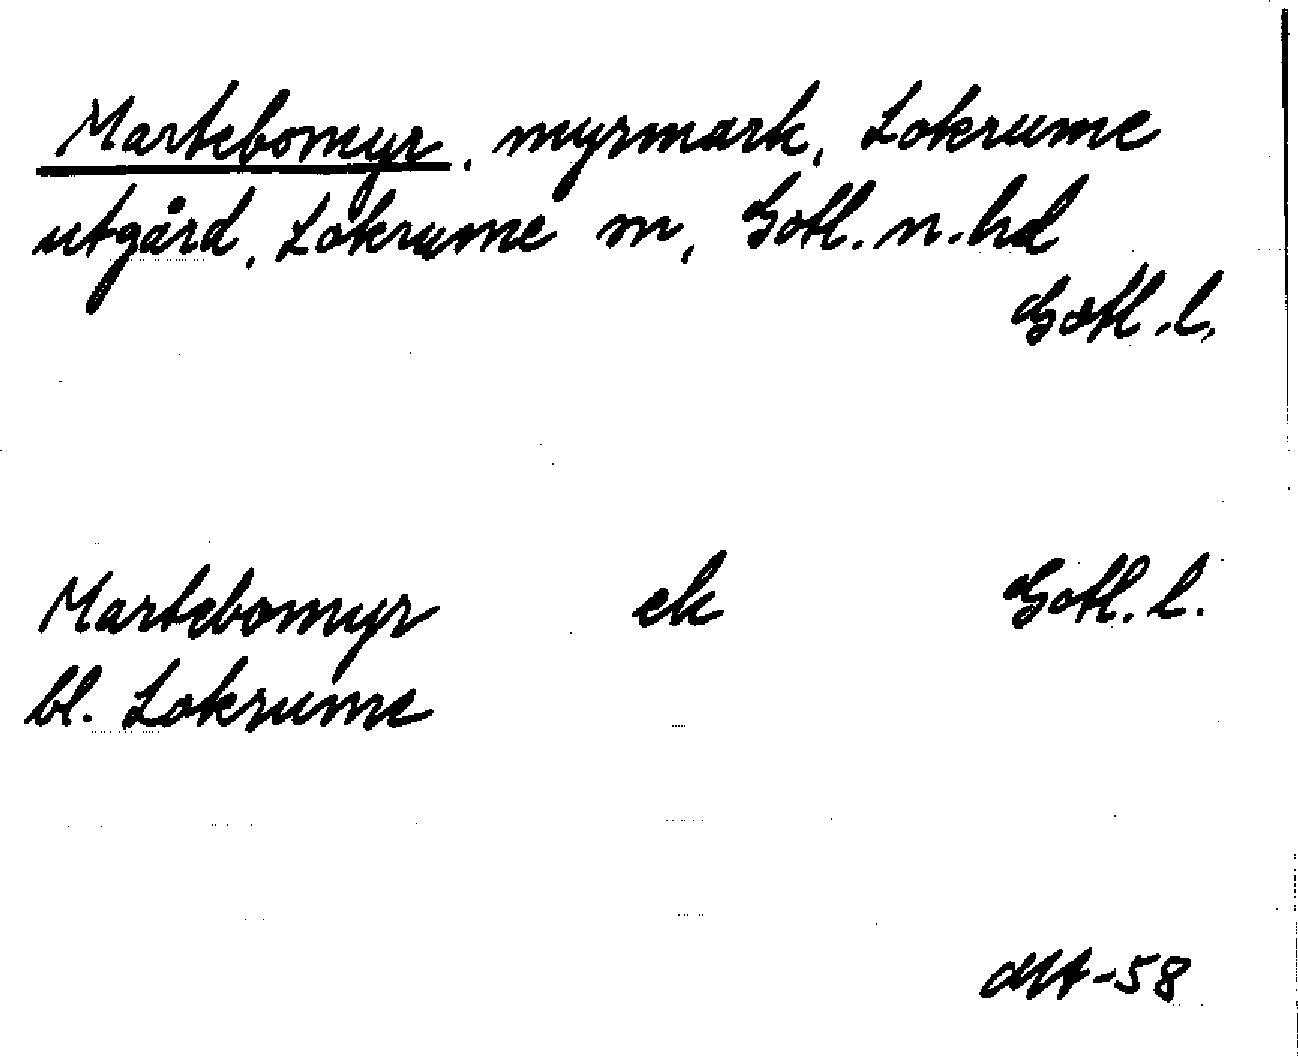 Martebomyr, myrmark, Lokrume
utgård, Lokrume sn, Gotl. n. hd
Gotl. l.
Martebomyr ek Gotl. l.
bl. Lokrume
-58